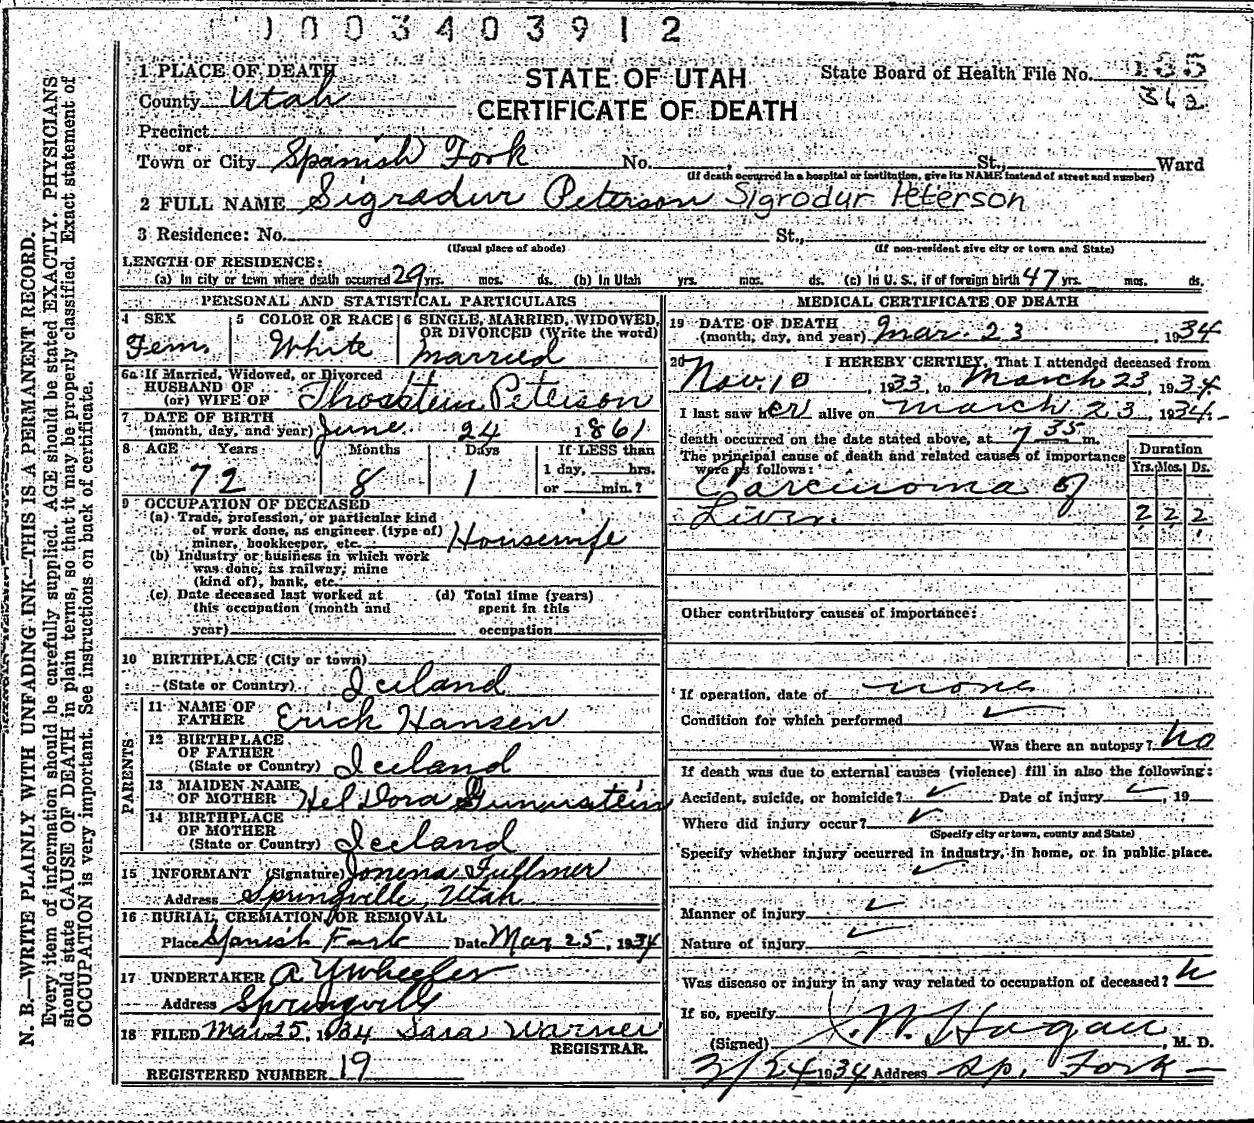 1003403912
1 PLACE OF DEATH
STATE OF UTAH
State Board of Health File No. 135
County Utah
CERTIFICATE OF DEATH
362
Precinct
or
Town or City Spanish Fork No. , St., Ward
(If death occurred in a hospital or institution, give its NAME instead of street and number)
2 FULL NAME Sigradur Peterson Sigrodur Peterson
3 Residence: No. St.,
(Usual place of abode) (If non-resident give city or town and State)
LENGTH OF RESIDENCE:
(a) In city or town where death occurred 29 yrs. mos. ds. (b) In Utah yrs. mos. ds. (c) In U. S., if of foreign birth 47 yrs. mos. ds.
PERSONAL AND STATISTICAL PARTICULARS
4 SEX
Fem.
5 COLOR OR RACE
White
6 SINGLE, MARRIED, WIDOWED,
OR DIVORCED (Write the word)
Married
6a If Married, Widowed, or Divorced
HUSBAND OF
(or) WIFE OF Peterson
7 DATE OF BIRTH
(month, day, and year) June 24 1861
8 AGE Years Months Days If LESS than
72 8 1 1 day, hrs.
or min.?
9 OCCUPATION OF DECEASED
(a) Trade, profession, or particular kind
of work done, as engineer (type of)
miner, bookkeeper, etc. Housewife
(b) Industry or business in which work
was done, as railway, mine
(kind of), bank, etc.
(c) Date deceased last worked at
this occupation (month and
year)
(d) Total time (years)
spent in this
occupation
10 BIRTHPLACE (City or town)
(State or Country) Iceland
PARENTS
11 NAME OF
FATHER Erick Hansen
12 BIRTHPLACE
OF FATHER
(State or Country) Iceland
13 MAIDEN NAME
OF MOTHER Hel Dora
14 BIRTHPLACE
OF MOTHER
(State or Country) Iceland
15 INFORMANT (Signature) Jonena Fullmer
Address Springville, Utah
16 BURIAL, CREMATION, OR REMOVAL
Place Spanish Fork Date Mar 25, 1934
17 UNDERTAKER A Y Wheeler
Address Springville
18 FILED Mar 25, 1934 Sara Warner
REGISTRAR.
REGISTERED NUMBER 19
MEDICAL CERTIFICATE OF DEATH
19 DATE OF DEATH
(month, day, and year) Mar. 23, 1934
20 I HEREBY CERTIFY, That I attended deceased from
Nov. 10 1933, to March 23, 1934
I last saw her alive on March 23, 1934
death occurred on the date stated above, at 7 35 m.
The principal cause of death and related causes of importance
were as follows:
Duration
Yrs. Mos. Ds.
Carcinoma of
Liver. 2 2 2
Other contributory causes of importance:
If operation, date of none
Condition for which performed
Was there an autopsy? no
If death was due to external causes (violence) fill in also the following:
Accident, suicide, or homicide? Date of injury , 19
Where did injury occur?
(Specify city or town, county and State)
Specify whether injury occurred in industry, in home, or in public place.
Manner of injury
Nature of injury
Was disease or injury in any way related to occupation of deceased?
If so, specify
(Signed) Hagan, M. D.
3/24 1934 Address Sp. Fork
N. B.—WRITE PLAINLY WITH UNFADING INK—THIS IS A PERMANENT RECORD.
Every item of information should be carefully supplied. AGE should be stated EXACTLY. PHYSICIANS
should state CAUSE OF DEATH in plain terms, so that it may be properly classified. Exact statement of
OCCUPATION is very important. See instructions on back of certificate.